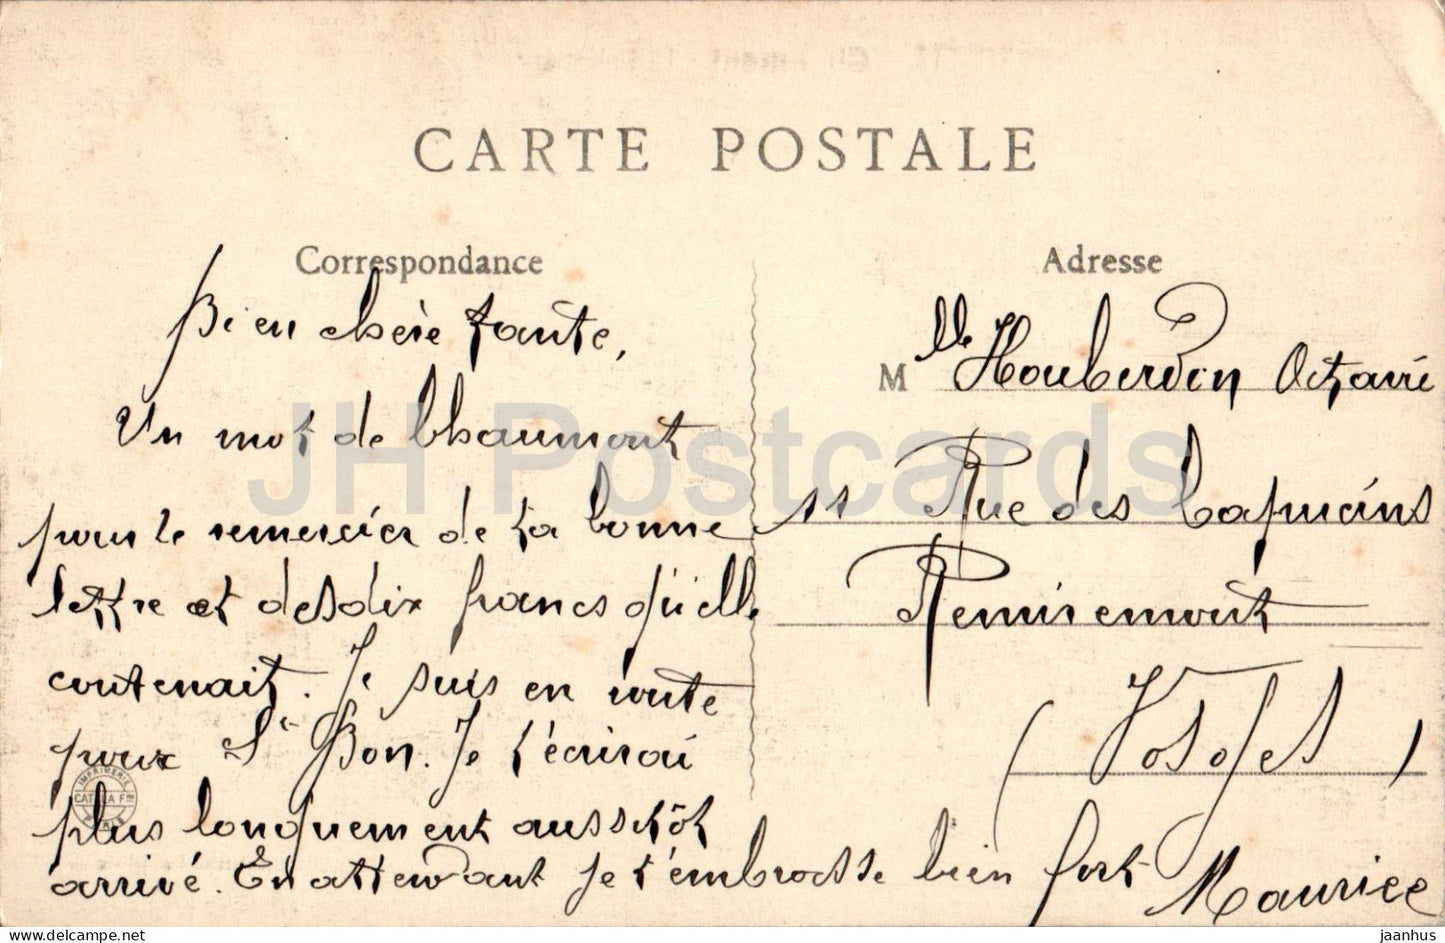 CARTE POSTALE
Correspondance
Bien chère tante,
Un mot de Chaumont
pour te remercier de ta bonne
lettre et des dix francs qu'elle
contenait. Je suis en route
pour St Bon. Je t'écrirai
plus longuement aussitôt
arrivé. En attendant je t'embrasse bien fort
Maurice
Adresse
Mlle Houberdon Octavie
11 Rue des Capucins
Remiremont
(Vosges)
IMPRIMERIE
CATALA Fres
PARIS
JH Postcards
www.delcampe.net
jaanhus